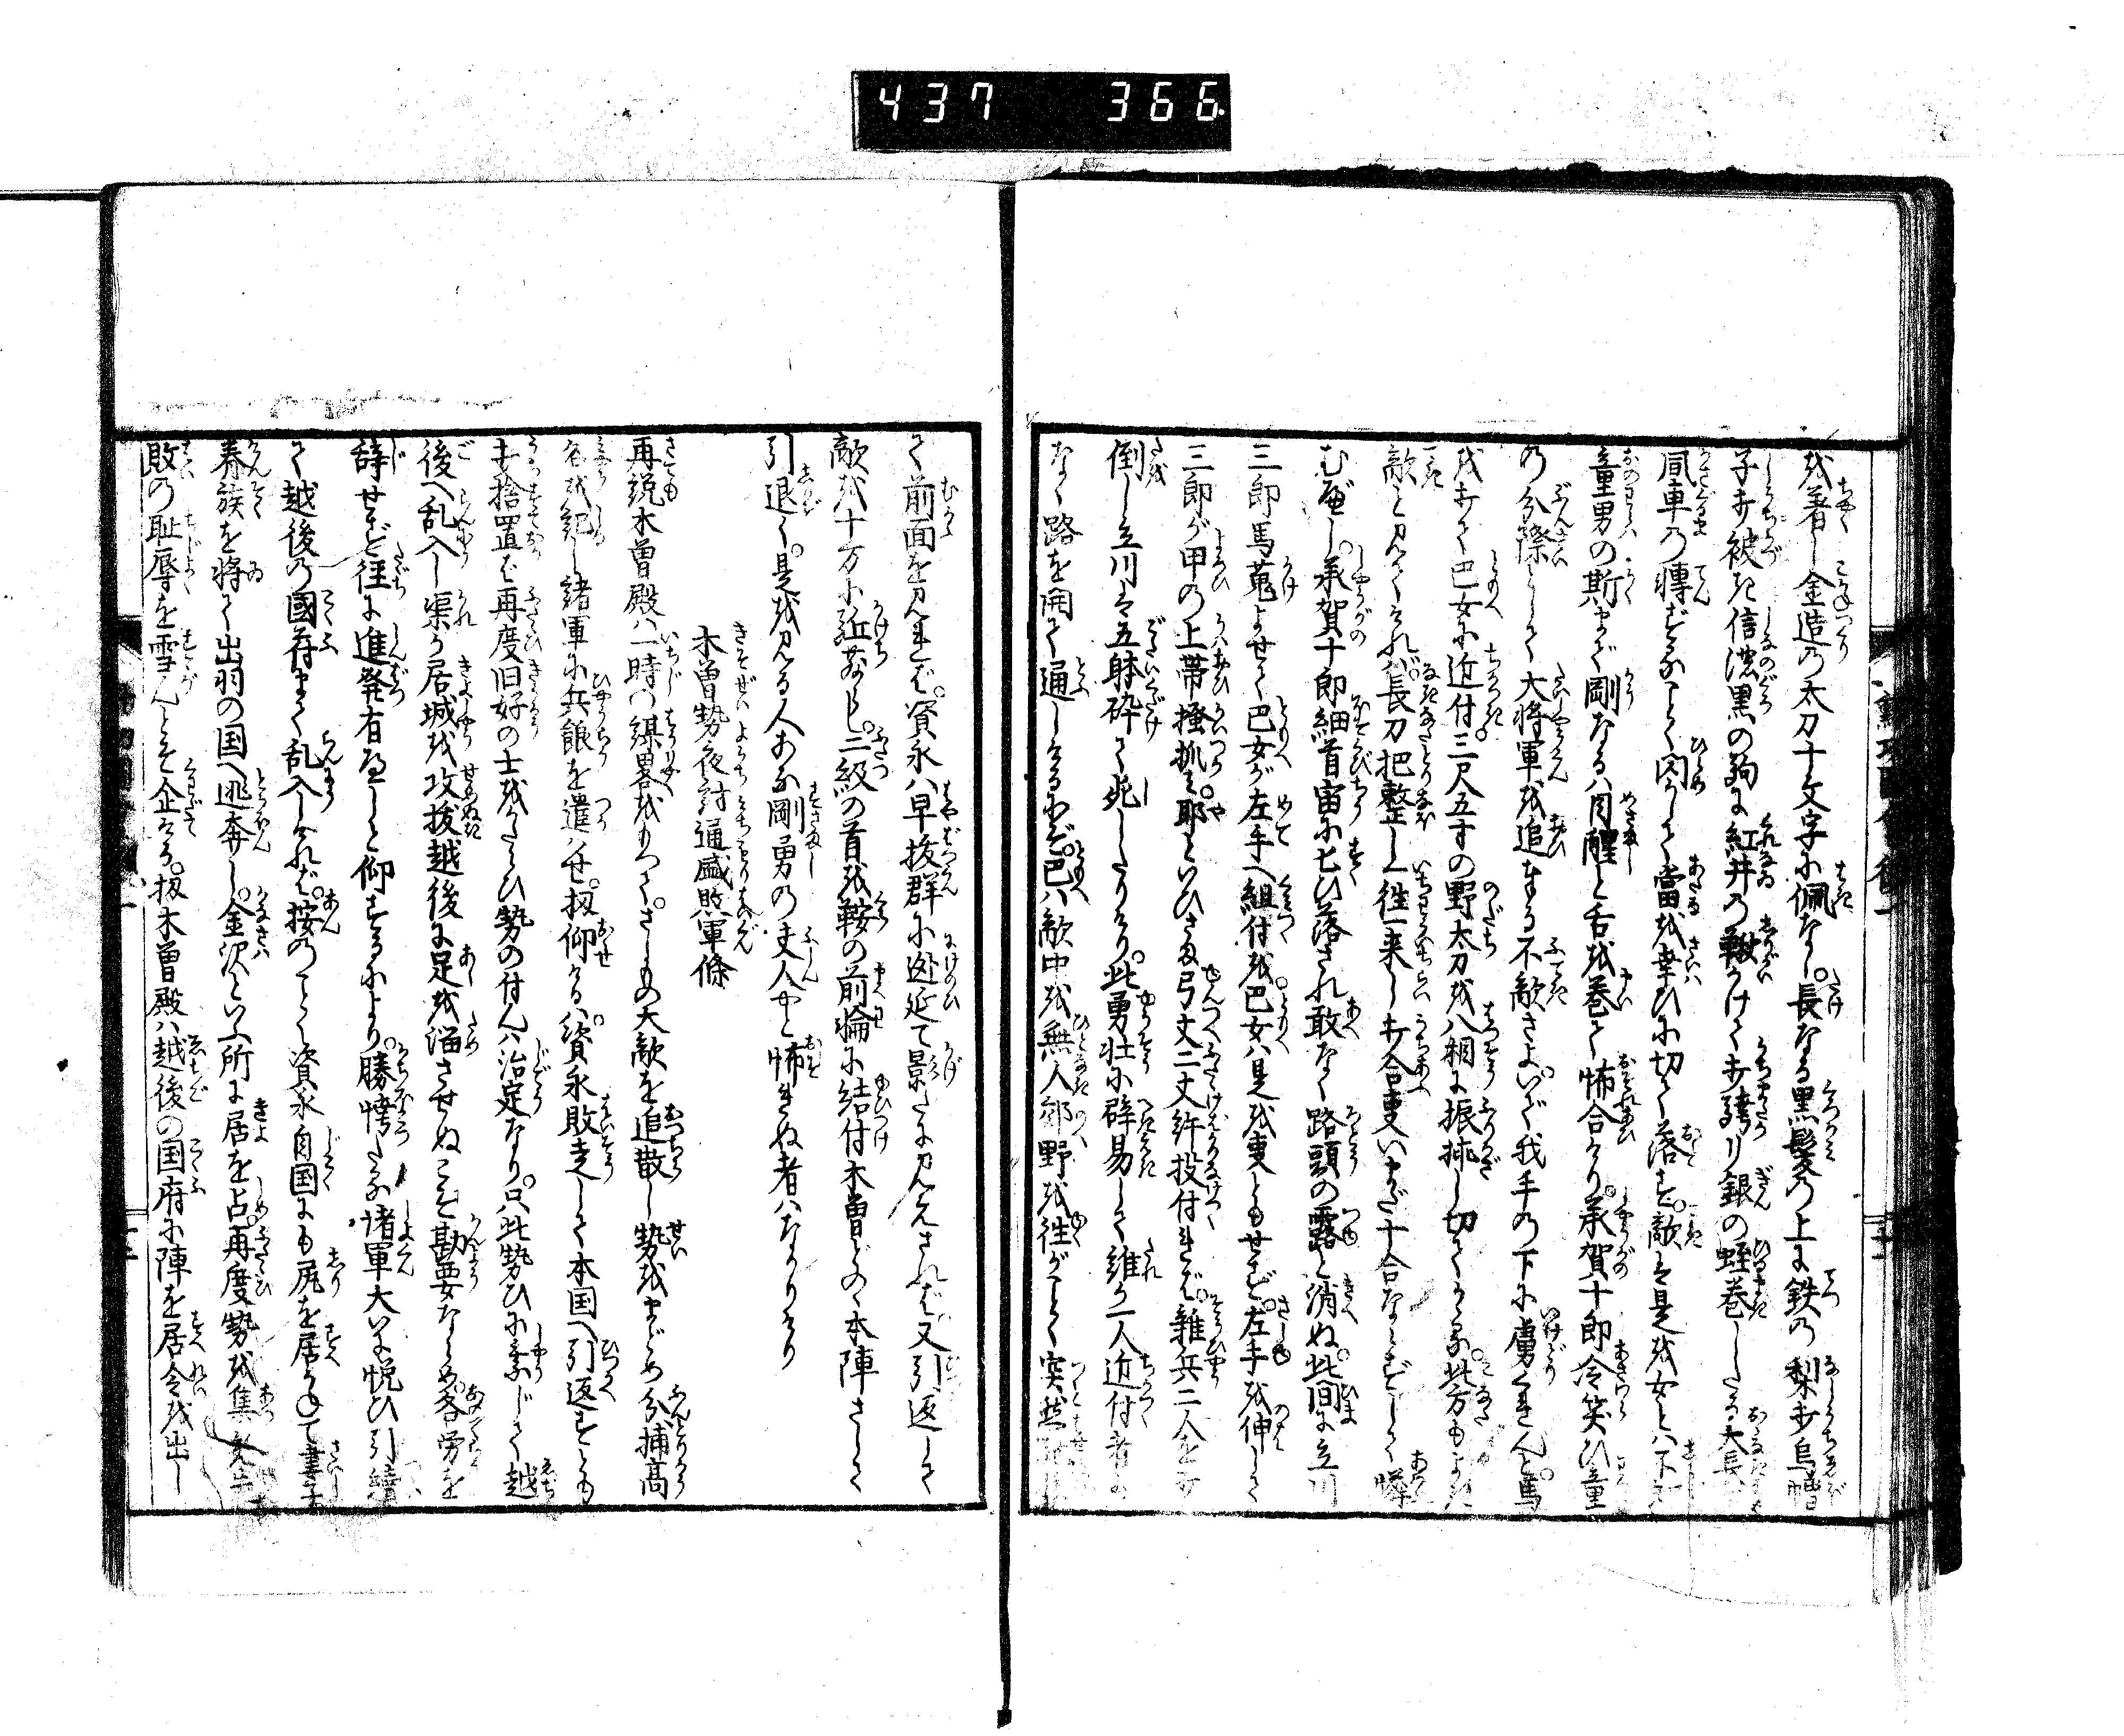 437 366
を着し金造の太刀十文字に佩なし。長なる黒髪の上に鉄の梨打烏帽
子打被き信濃黒の駒に紅井の鞦かけて打跨り銀の蛭巻したる大長刀
風車の轉ずるごとく閃かして當を幸ひに切て落す。敵は是を女とは不知
童男の斯まで剛なるは目醒しと舌を巻て怖合けり。承賀十郎冷笑ひ童
の分際として大将軍を追まゐる不敵さよ。いで我手の下に虜くれんと。馬
を打て巴女に近付。三尺五寸の野太刀を八相に振挿し切てかゝる。此方もよき
敵と見てければ。長刀把整し一往一来し打合事いまだ十合ならずして。
むざんし。承賀十郎細首宙に七ひ落され敢なく路頭の露と消ぬ。此間に立川
三郎馬蒐よせて巴女が左手へ組付を。巴女は是を事ともせず。左手を伸して
三郎が甲の上帯掻抓み。耶といひさま弓丈二丈許投付れば。雑兵二人を
倒し立川は五躰砕て死したりけり。此勇壮に辟易して誰か一人近付者も
なく路を開て通しけるにぞ。巴は敵中を無人郊野を往がごとく突然
て前面を見れば。資永は早抜群に迯延て影だに見えざれば又引返して
敵を十万に近なし。二級の首を鞍の前輪に結付木曽どのゝ本陣さして
引退く。是を見る人あな剛勇の丈人やと怖れぬ者はなかりけり
木曽勢夜討通盛敗軍條
再説木曽殿は一時の謀畧をもつて。さしもの大敵を追散し勢をまとめ分捕高
名を記し諸軍に兵粮を遣はせ。扨仰けるは。資永敗走して本国へ引返すとも
打捨置ば再度旧好の士をかたらひ勢の付んは治定なり。只此勢ひに乗じて越
後へ乱入し渠が居城を攻抜越後に足を溜させぬこそ勘要ならめ。各労を
辞せず径に進発有べしと仰するにより。勝愕たる諸軍大いに悦び引續
て越後の國府まで乱入しければ。按のごとく資永自国にも尻を居かねて妻子
眷族を将て出羽の国へ逃奔し。金沢といふ所に居を占。再度勢を集
敗の耻辱を雪んとぞ企ける。扨木曽殿は越後の国府に陣を居令を出し